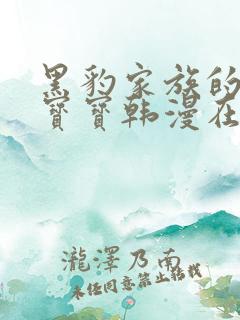 黑豹家族的
寶寶韩漫在
瀧澤乃南
未经同意禁止转载